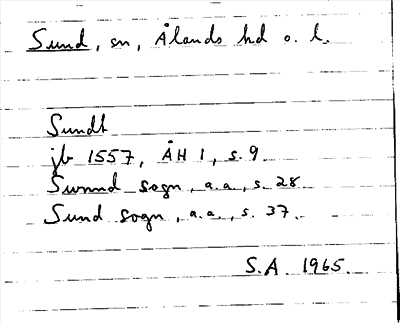 Sund, sn, Ålands hd o. l.
Sundt
jb 1557, ÅH 1, s. 9.
Swnnd sogn, a.a., s. 28
Sund sogn, a.a., s. 37.
S.A. 1965.